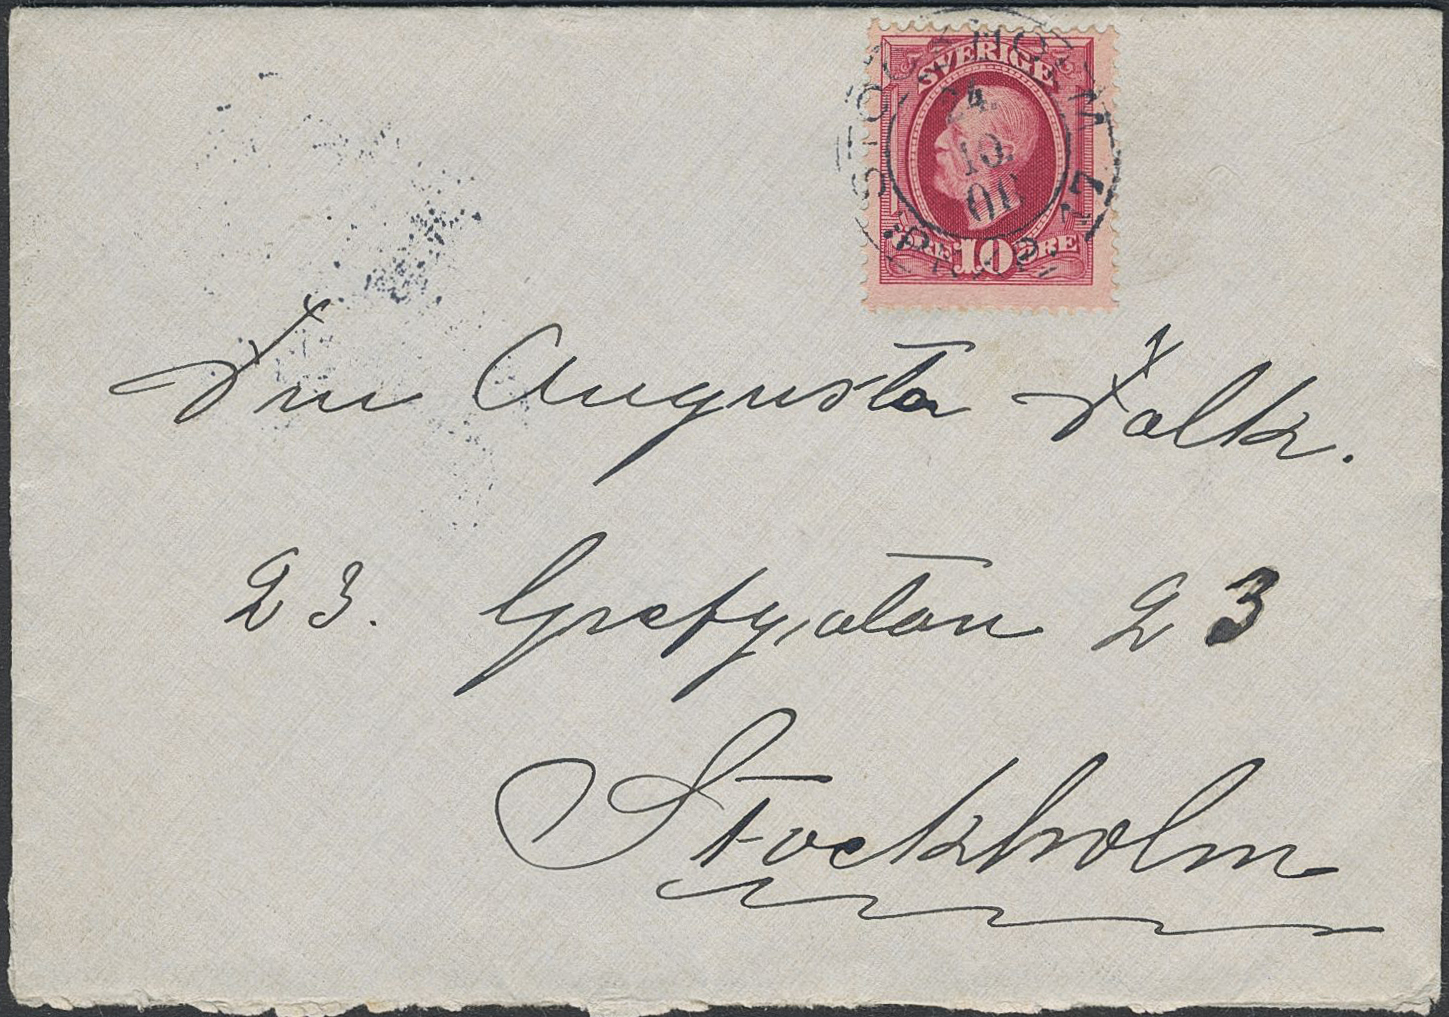 SVERIGE
STOCKHOLM
24.
10.
00
10 ÖRE
Fru Augusta Falk.
23. Grefgatan 23
Stockholm